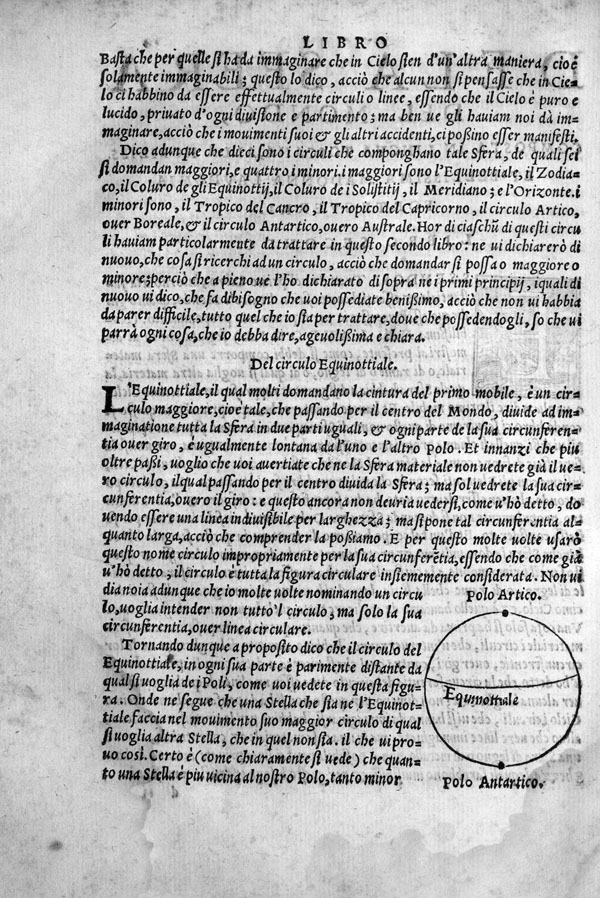 LIBRO
Basta che per quelle si ha da immaginare che in Cielo sien d'un'altra maniera, cioè
solamente immaginabili; questo lo dico, acciò che alcun non si pensasse che in Cie-
lo ci habbino da essere effettualmente circuli o linee, essendo che il Cielo è puro e
lucido, privato d'ogni divisione e partimento; ma ben ve gli haviam noi dà im-
maginare, acciò che i movimenti suoi & gli altri accidenti, ci poßino esser manifesti.
Dico adunque che dieci sono i circuli che componghano tale Sfera, de quali sei
si domandan maggiori, e quattro i minori. i maggiori sono l'Equinottiale, il Zodia-
co, il Coluro de gli Equinottij, il Coluro de i Solistitij, il Meridiano; e l'Orizonte. i
minori sono, il Tropico del Cancro, il Tropico del Capricorno, il circulo Artico,
over Boreale, & il circulo Antartico, overo Australe. Hor di ciaschũ di questi circu
li haviam particolarmente da trattare in questo secondo libro: ne vi dichiarerò di
nuovo, che cosa si ricerchi ad un circulo, acciò che domandar si possa o maggiore o
minore; perciò che a pieno ve l'ho dichiarato di sopra ne i primi principij, i quali di
nuovo vi dico, che fa dibisogno che voi possediate benißimo, acciò che non vi habbia
da parer difficile, tutto quel che io sia per trattare, dove che possedendogli, so che vi
parrà ogni cosa, che io debba dire, agevolißima e chiara.
Del circulo Equinottiale.
L'Equinottiale, il qual molti domandano la cintura del primo mobile, è un cir-
culo maggiore, cioè tale, che passando per il centro del Mondo, divide ad im-
maginatione tutta la Sfera in due parti uguali, & ogni parte de la sua circunferen-
tia over giro, è ugualmente lontana da l'uno e l'altro Polo. Et innanzi che piu
oltre paßi, voglio che voi avertiate che ne la Sfera materiale non vedrete già il ve-
ro circulo, il qual passando per il centro divida la Sfera; ma sol vedrete la sua cir-
cunferentia, overo il giro: e questo ancora non devria vedersi, come v'hò detto, do
vendo essere una linea indivisibile per larghezza; ma si pone tal circunferentia al-
quanto larga, acciò che comprender la poßiamo. E per questo molte volte usarò
questo nome circulo impropriamente per la sua circunferẽtia, essendo che come già
v'hò detto, il circulo è tutta la figura circulare insiememente considerata. Non vi
dia noia adunque che io molte volte nominando un circu
lo, voglia intender non tutto'l circulo; ma solo la sua
circunferentia, over linea circulare.
Tornando dunque a proposito dico che il circulo del
Equinottiale, in ogni sua parte è parimente distante da
qual si voglia de i Poli, come voi vedete in questa figu-
ra. Onde ne segue che una Stella che sia ne l'Equinot-
tiale faccia nel movimento suo maggior circulo di qual
si voglia altra Stella, che in quel non sta. il che vi pro-
vo così. Certo è (come chiaramente si vede) che quan-
to una Stella è piu vicina al nostro Polo, tanto minor
Polo Artico.
Equinottiale
Polo Antartico.